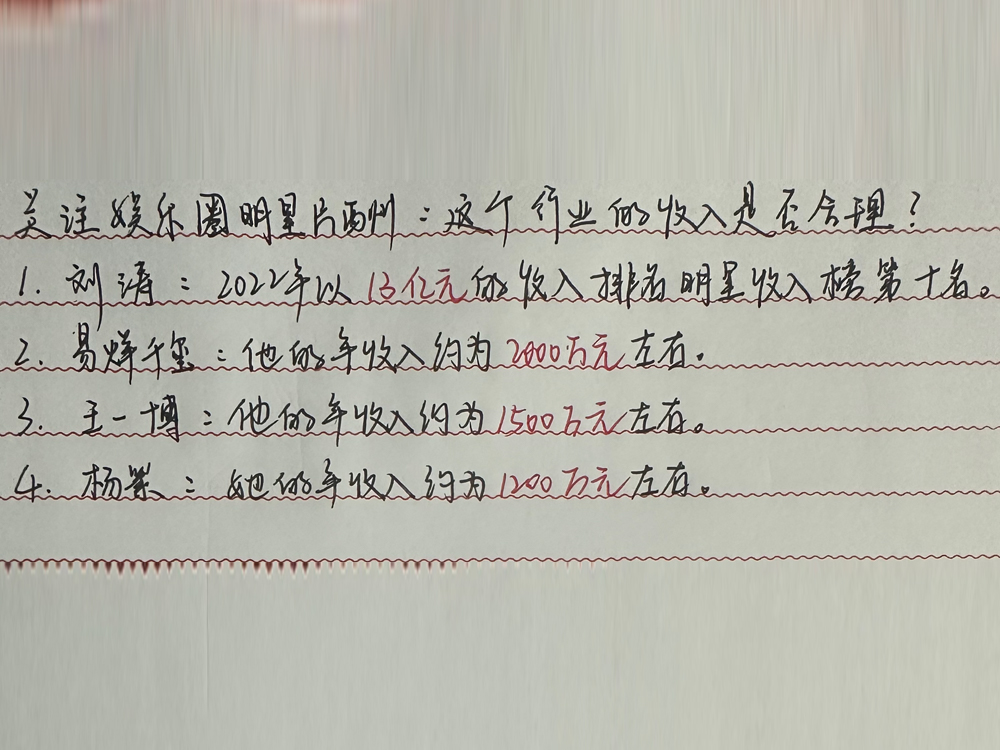 关注娱乐圈明星片酬：这个行业的收入是否合理？
1. 刘涛：2022年以13亿元的收入排名明星收入榜第十名。
2. 易烊千玺：他的年收入约为2000万元左右。
3. 王一博：他的年收入约为1500万元左右。
4. 杨紫：她的年收入约为1200万元左右。